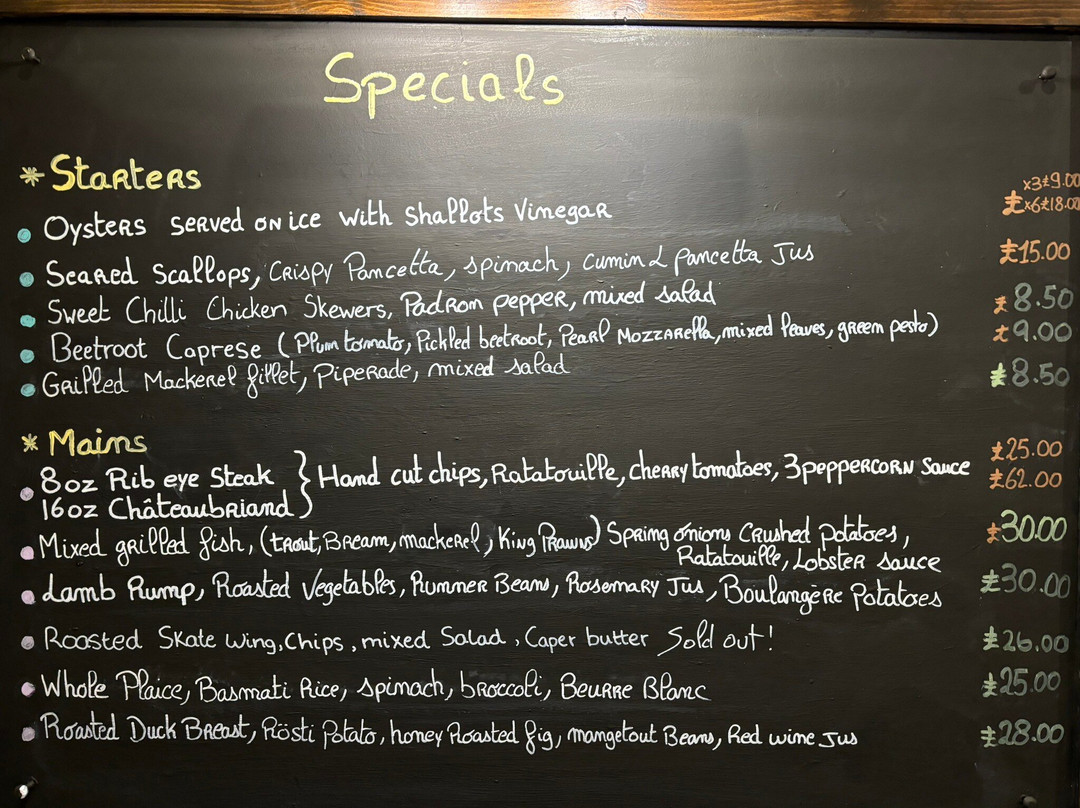 Specials
* Starters
Oysters served on ice with Shallots Vinegar x3 £9.00
£ x6 £18.00
Seared Scallops, Crispy Pancetta, spinach, cumin & pancetta Jus £15.00
Sweet Chilli Chicken Skewers, Padron pepper, mixed salad £8.50
Beetroot Caprese (Plum tomato, Pickled beetroot, Pearl Mozzarella, mixed leaves, green pesto) £9.00
Grilled Mackerel fillet, Piperade, mixed salad £8.50
* Mains
8oz Rib eye Steak } Hand cut chips, Ratatouille, cherry tomatoes, 3 peppercorn Sauce £25.00
16oz Châteaubriand £62.00
Mixed grilled fish, (trout, Bream, mackerel, King Prawns) Spring onions Crushed Potatoes, £30.00
Ratatouille, Lobster sauce
Lamb Rump, Roasted Vegetables, Runner Beans, Rosemary Jus, Boulangère Potatoes £30.00
Roasted Skate wing, Chips, mixed Salad, Caper butter Sold out! £26.00
Whole Plaice, Basmati Rice, spinach, broccoli, Beurre Blanc £25.00
Roasted Duck Breast, Rösti Potato, honey Roasted fig, mangetout Beans, Red wine Jus £28.00